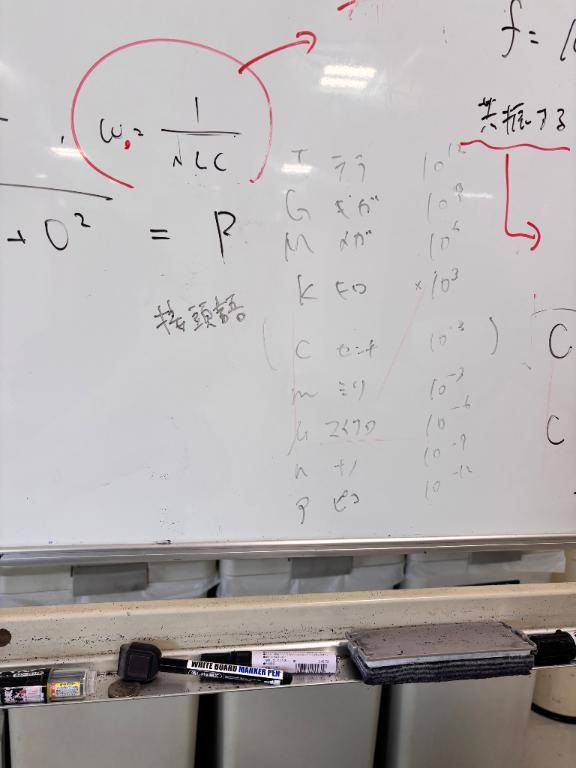 f = 1
ω₀ = 1/√LC
共振する
T テラ 10¹²
G ギガ 10⁹
+ 0² = P
M メガ 10⁶
K キロ ×10³
接頭語
( C センチ 10⁻² )
C
m ミリ 10⁻³
μ マイクロ 10⁻⁶
C
n ナノ 10⁻⁹
p ピコ 10⁻¹²
WHITE BOARD MARKER PEN